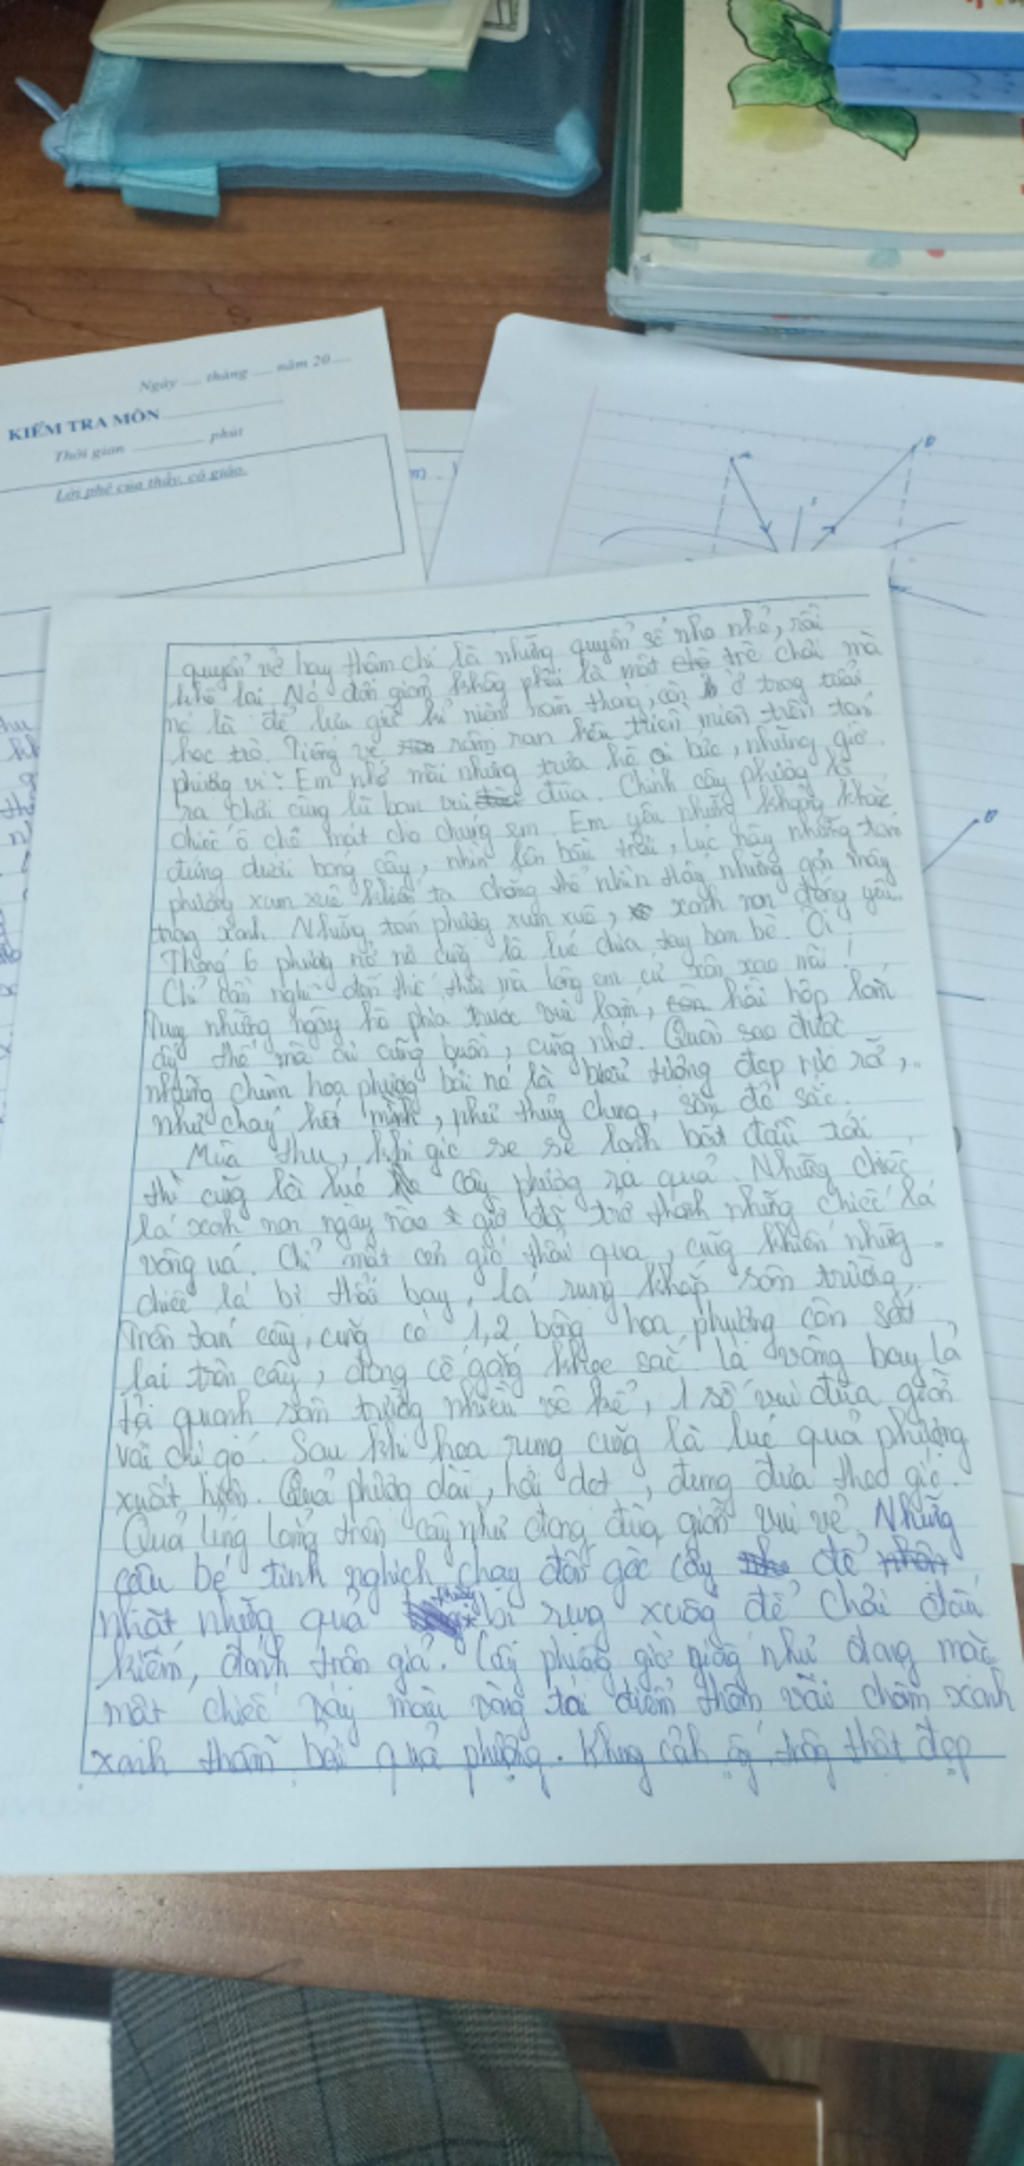 Ngày ... tháng ... năm 20...
KIỂM TRA MÔN
Thời gian ... phút
Lời phê của thầy, cô giáo.
quyển vở hay thậm chí là những quyển sổ nho nhỏ, rồi
khô lại. Nó đơn giản không phải là một trò chơi mà
nó là để lưu giữ kỉ niệm năm tháng, còn ở trong tuổi
học trò. Tiếng ve râm ran kêu triền miên trên tán
phượng vĩ. Em nhớ mãi những trưa hè oi bức, những giờ
ra chơi cùng lũ bạn vui đùa. Chính cây phượng là
chiếc ô che mát cho chúng em. Em yêu những khoảng khắc
đứng dưới bóng cây, nhìn lên bầu trời, lúc này những tán
phượng xum xuê khiến ta chẳng thể nhìn thấy những gợn mây
trong xanh. Những tán phượng xum xuê, xanh non đáng yêu.
Tháng 6 phượng nở, nó cũng là lúc chia tay bạn bè. Ôi!
Chỉ cần nghĩ đến thế thôi mà lòng em cứ xôn xao mãi!
Tuy những ngày hè phía trước vui lắm, hồi hộp lắm
đấy thế mà ai cũng buồn, cũng nhớ. Quên sao được
những chùm hoa phượng bởi nó là biểu tượng đẹp rực rỡ,
như cháy hết mình, như thủy chung, sớm đỏ sắc.
Mùa thu, khi gió se se lạnh bắt đầu tới
thì cũng là lúc cây phượng ra quả. Những chiếc
lá xanh non ngày nào giờ đã trở thành những chiếc lá
vàng úa. Chỉ một cơn gió thổi qua, cũng khiến những
chiếc lá bị thổi bay, lá rụng khắp sân trường.
Trên tán cây, cũng có 1,2 bông hoa phượng còn sót
lại trên cây, đang cố gắng khoe sắc. Lá vàng bay lả
tả quanh sân trường nhiều vô kể, 1 số vui đùa giỡn
với chị gió. Sau khi hoa rụng cũng là lúc quả phượng
xuất hiện. Quả phượng dài, hơi dẹt, đung đưa theo gió.
Quả lủng lẳng trên cây như đang đùa giỡn vui vẻ. Những
cậu bé tinh nghịch chạy đến gốc cây để
nhặt những quả bị rụng xuống để chơi đấu
kiếm, đánh trận giả. Cây phượng giờ giống như đang mặc
một chiếc váy màu vàng tô điểm thêm vài chấm xanh
xanh thẫm bởi quả phượng. Khung cảnh ấy trông thật đẹp